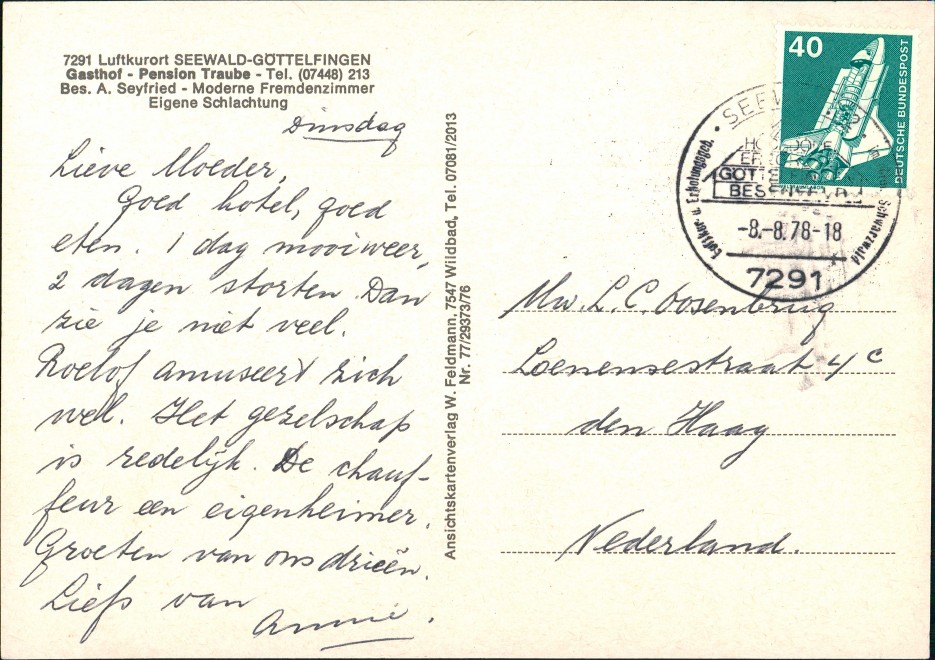 7291 Luftkurort SEEWALD-GÖTTELFINGEN
Gasthof - Pension Traube - Tel. (07448) 213
Bes. A. Seyfried - Moderne Fremdenzimmer
Eigene Schlachtung
Dinsdag
Lieve Moeder,
Goed hotel, goed
eten. 1 dag mooi weer,
2 dagen storten. Dan
zie je niet veel.
Roelof amuseert zich
wel. Het gezelschap
is redelijk. De chauf-
feur een eigenheimer.
Groeten van ons drieën.
Liefs van
Annie.
Ansichtskartenverlag W. Feldmann, 7547 Wildbad, Tel. 07081/2013
Nr. 77/29373/76
40
DEUTSCHE BUNDESPOST
Luftkur- u. Erholungsgeb.
Schwarzwald
-8.-8.78-18
7291
Mw. L. C. Oosenbrug
Loenensestraat 4c
den Haag
Nederland.